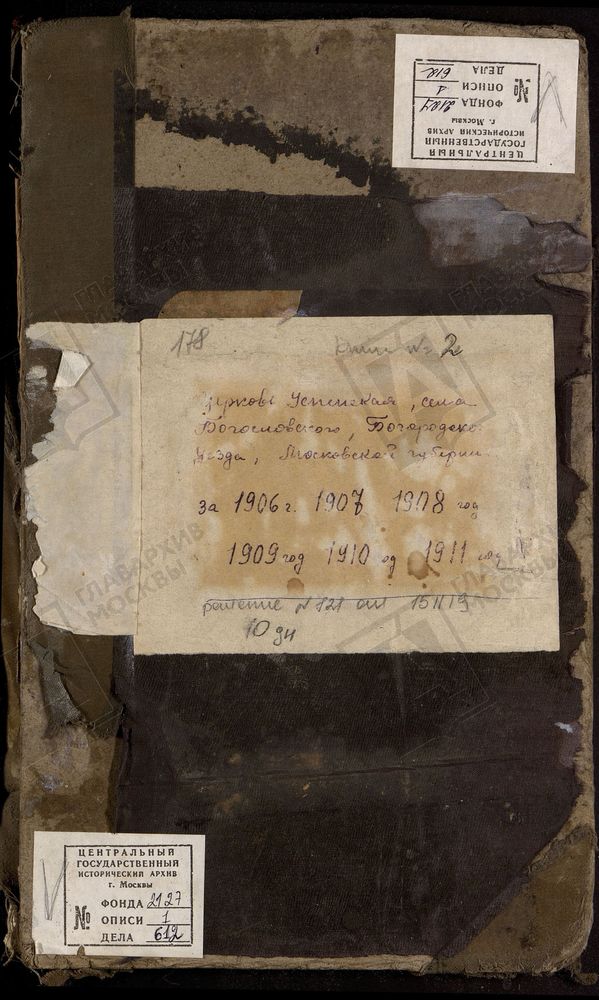 ЦЕНТРАЛЬНЫЙ
ГОСУДАРСТВЕННЫЙ
ИСТОРИЧЕСКИЙ АРХИВ
г. Москвы
№
ФОНДА 2127
ОПИСИ 1
ДЕЛА 612
178
2
Церковь Успенская, села
Богословского, Богородско
Уезда, Московской губернии
за 1906 г. 1907 1908 год
1909 год 1910 од 1911 год
решение № 121 от
10 дн
ЦЕНТРАЛЬНЫЙ
ГОСУДАРСТВЕННЫЙ
ИСТОРИЧЕСКИЙ АРХИВ
г. Москвы
№
ФОНДА 2127
ОПИСИ 1
ДЕЛА 612
ГЛАВАРХИВ
МОСКВЫ